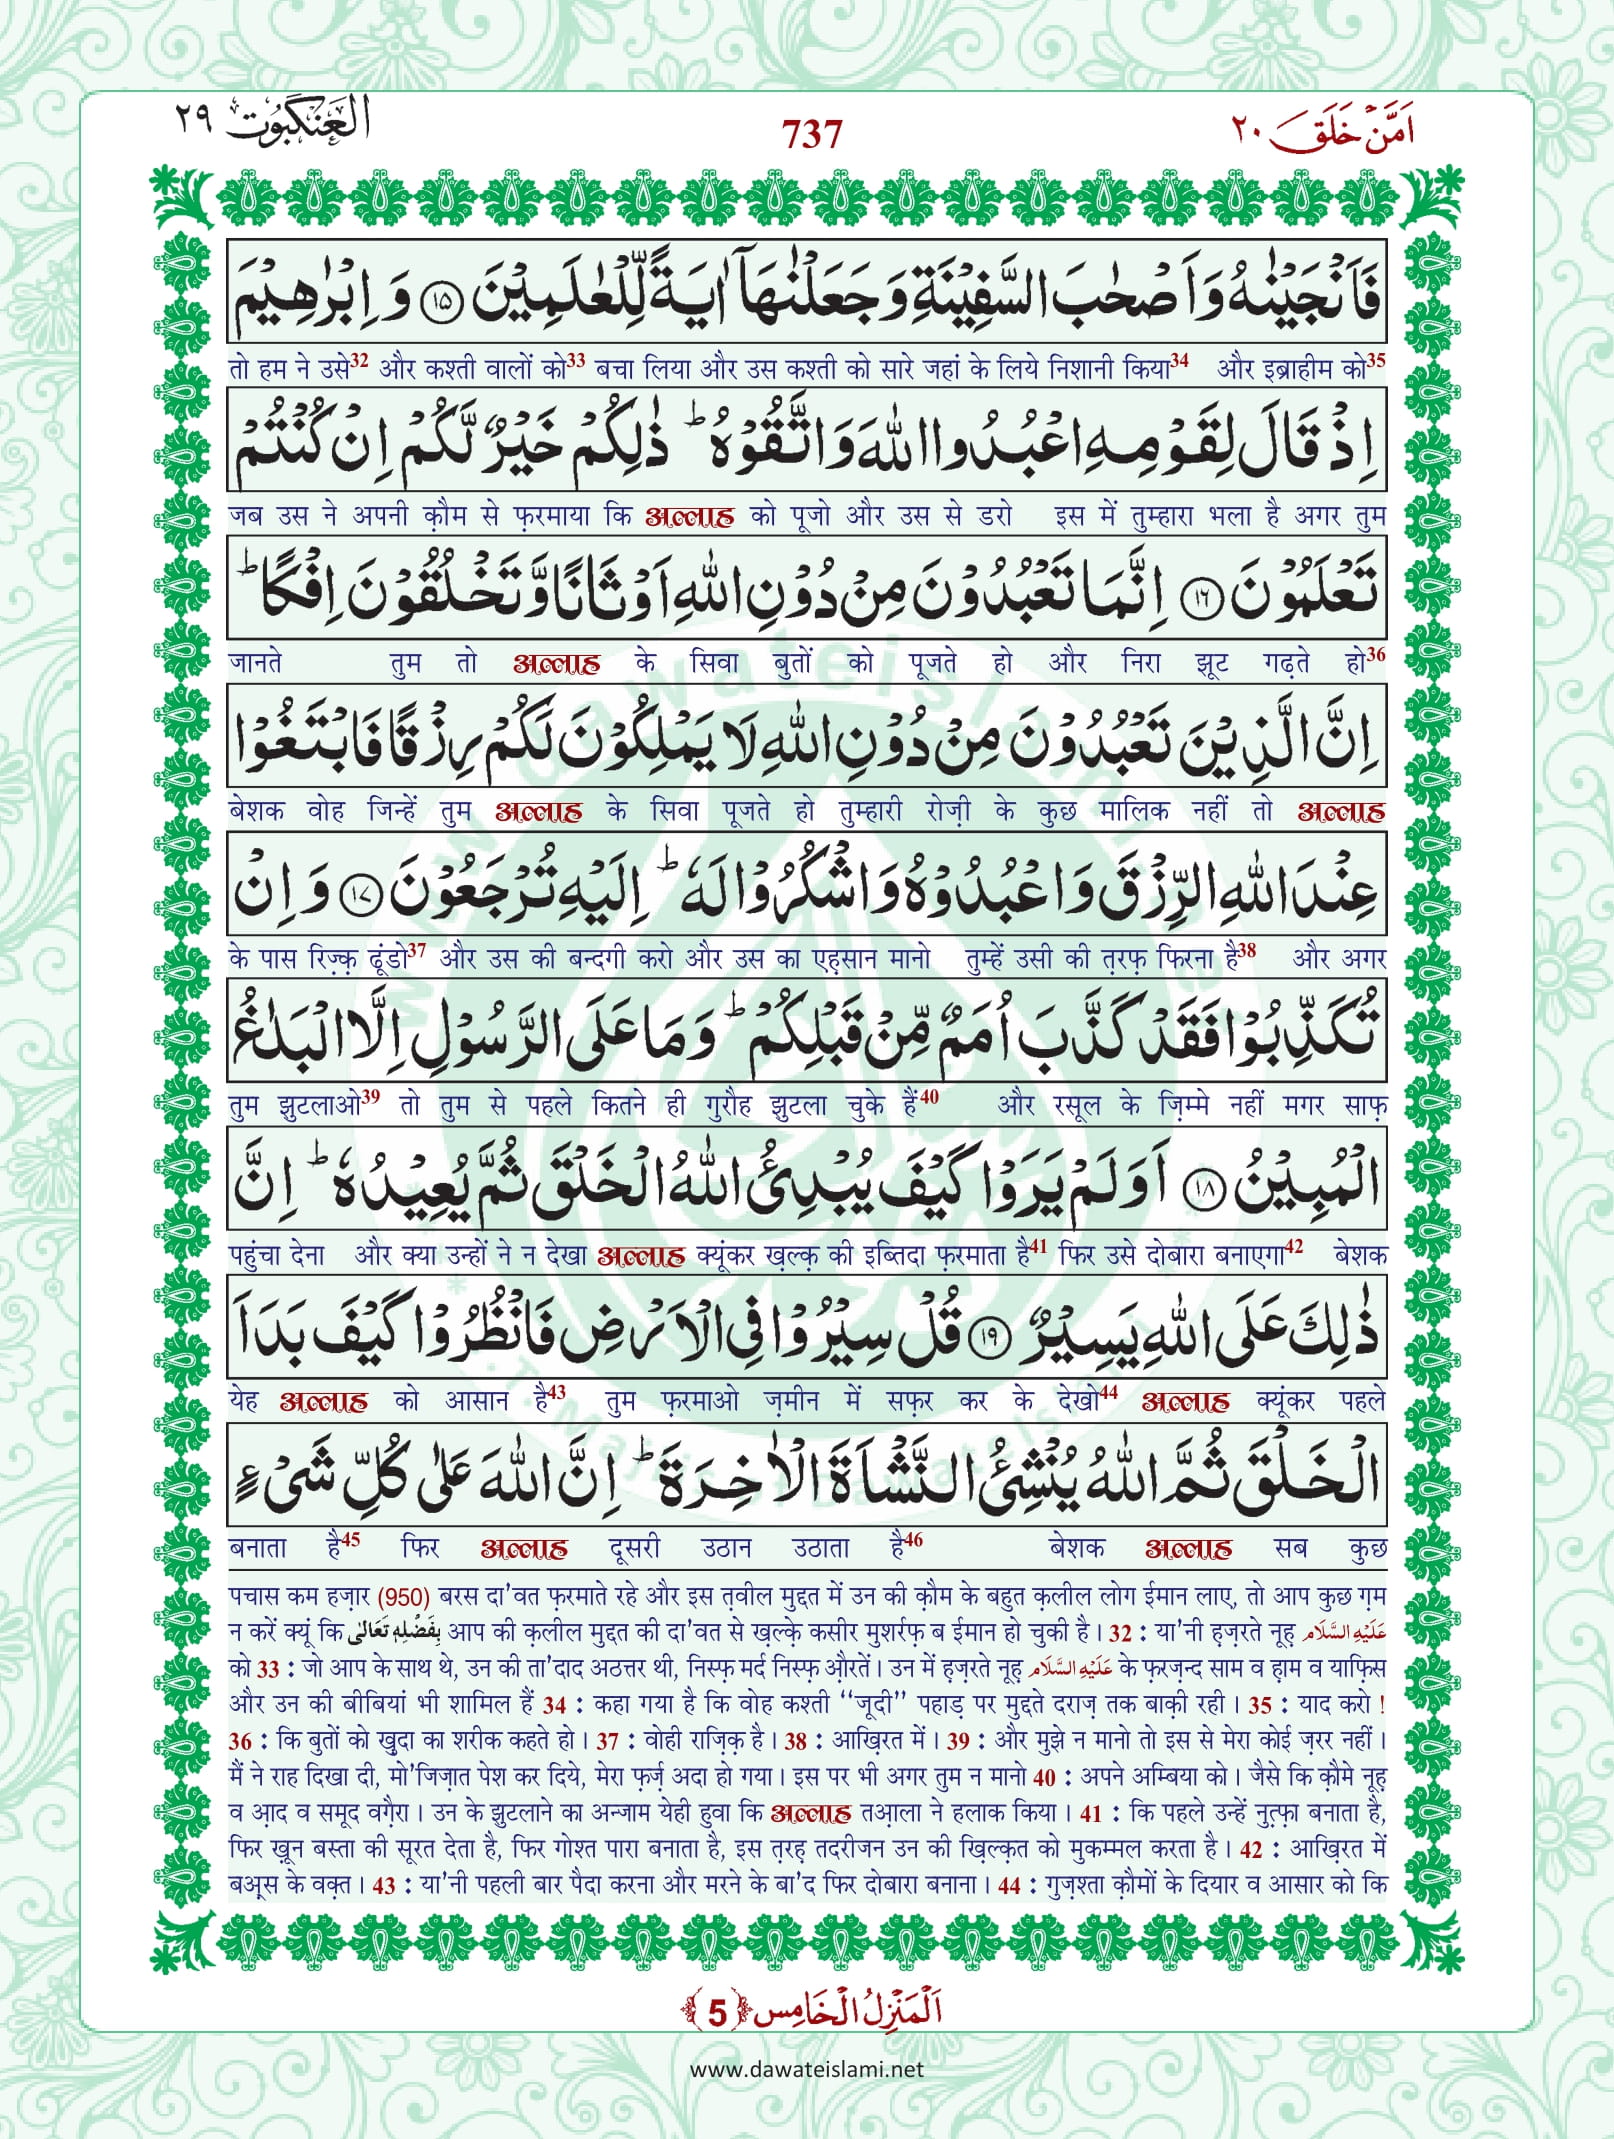 اَمَّنْ خَلَقَ ٢٠
737
الْعَنْكَبُوْت ٢٩
فَاَنْجَیْنٰهُ وَ اَصْحٰبَ السَّفِیْنَةِ وَ جَعَلْنٰهَاۤ اٰیَةً لِّلْعٰلَمِیْنَ ﴿۱۵﴾ وَ اِبْرٰهِیْمَ
तो हम ने उसे32 और कश्ती वालों को33 बचा लिया और उस कश्ती को सारे जहां के लिये निशानी किया34 और इब्राहीम को35
اِذْ قَالَ لِقَوْمِهِ اعْبُدُوا اللّٰهَ وَ اتَّقُوْهُ ؕ ذٰلِكُمْ خَیْرٌ لَّكُمْ اِنْ كُنْتُمْ
जब उस ने अपनी क़ौम से फ़रमाया कि अल्लाह को पूजो और उस से डरो इस में तुम्हारा भला है अगर तुम
تَعْلَمُوْنَ ﴿۱۶﴾ اِنَّمَا تَعْبُدُوْنَ مِنْ دُوْنِ اللّٰهِ اَوْثَانًا وَّ تَخْلُقُوْنَ اِفْكًا ؕ
जानते तुम तो अल्लाह के सिवा बुतों को पूजते हो और निरा झूट गढ़ते हो36
اِنَّ الَّذِیْنَ تَعْبُدُوْنَ مِنْ دُوْنِ اللّٰهِ لَا یَمْلِكُوْنَ لَكُمْ رِزْقًا فَابْتَغُوْا
बेशक वोह जिन्हें तुम अल्लाह के सिवा पूजते हो तुम्हारी रोज़ी के कुछ मालिक नहीं तो अल्लाह
عِنْدَ اللّٰهِ الرِّزْقَ وَ اعْبُدُوْهُ وَ اشْكُرُوْا لَهٗ ؕ اِلَیْهِ تُرْجَعُوْنَ ﴿۱۷﴾ وَ اِنْ
के पास रिज़्क़ ढूंडो37 और उस की बन्दगी करो और उस का एह़सान मानो तुम्हें उसी की त़रफ़ फिरना है38 और अगर
تُكَذِّبُوْا فَقَدْ كَذَّبَ اُمَمٌ مِّنْ قَبْلِكُمْ ؕ وَ مَا عَلَى الرَّسُوْلِ اِلَّا الْبَلٰغُ
तुम झुटलाओ39 तो तुम से पहले कितने ही गुरौह झुटला चुके हैं40 और रसूल के ज़िम्मे नहीं मगर साफ़
الْمُبِیْنُ ﴿۱۸﴾ اَوَ لَمْ یَرَوْا كَیْفَ یُبْدِئُ اللّٰهُ الْخَلْقَ ثُمَّ یُعِیْدُهٗ ؕ اِنَّ
पहुंचा देना और क्या उन्हों ने न देखा अल्लाह क्यूंकर ख़ल्क़ की इब्तिदा फ़रमाता है41 फिर उसे दोबारा बनाएगा42 बेशक
ذٰلِكَ عَلَى اللّٰهِ یَسِیْرٌ ﴿۱۹﴾ قُلْ سِیْرُوْا فِی الْاَرْضِ فَانْظُرُوْا كَیْفَ بَدَاَ
येह अल्लाह को आसान है43 तुम फ़रमाओ ज़मीन में सफ़र कर के देखो44 अल्लाह क्यूंकर पहले
الْخَلْقَ ثُمَّ اللّٰهُ یُنْشِئُ النَّشْاَةَ الْاٰخِرَةَ ؕ اِنَّ اللّٰهَ عَلٰى كُلِّ شَیْءٍ
बनाता है45 फिर अल्लाह दूसरी उठान उठाता है46 बेशक अल्लाह सब कुछ
पचास कम हज़ार (950) बरस दा'वत फ़रमाते रहे और इस त़वील मुद्दत में उन की क़ौम के बहुत क़लील लोग ईमान लाए, तो आप कुछ ग़म
न करें क्यूं कि بِفَضْلِهٖ تَعَالٰى आप की क़लील मुद्दत की दा'वत से ख़ल्क़े कसीर मुशर्रफ़ ब ईमान हो चुकी है। 32 : या'नी ह़ज़रते नूह़ عَلَيْهِ السَّلَام
को 33 : जो आप के साथ थे, उन की ता'दाद अठत्तर थी, निस्फ़ मर्द निस्फ़ औरतें। उन में ह़ज़रते नूह़ عَلَيْهِ السَّلَام के फ़रज़न्द साम व ह़ाम व याफ़िस
और उन की बीबियां भी शामिल हैं 34 : कहा गया है कि वोह कश्ती ‘‘जूदी’’ पहाड़ पर मुद्दते दराज़ तक बाक़ी रही। 35 : याद करो !
36 : कि बुतों को ख़ुदा का शरीक कहते हो। 37 : वोही राज़िक़ है। 38 : आख़िरत में। 39 : और मुझे न मानो तो इस से मेरा कोई ज़रर नहीं।
मैं ने राह दिखा दी, मो'जिज़ात पेश कर दिये, मेरा फ़र्ज़ अदा हो गया। इस पर भी अगर तुम न मानो 40 : अपने अम्बिया को। जैसे कि क़ौमे नूह़
व आ़द व समूद वग़ैरा। उन के झुटलाने का अन्जाम येही हुवा कि अल्लाह तआ़ला ने हलाक किया। 41 : कि पहले उन्हें नुत़्फ़ा बनाता है,
फिर ख़ून बस्ता की सूरत देता है, फिर गोश्त पारा बनाता है, इस त़रह़ तदरीजन उन की ख़िल्क़त को मुकम्मल करता है। 42 : आख़िरत में
बअ़्स के वक़्त। 43 : या'नी पहली बार पैदा करना और मरने के बा'द फिर दोबारा बनाना। 44 : गुज़श्ता क़ौमों के दियार व आसार को कि
اَلْمَنْزِلُ الْخَامِس ﴿5﴾
www.dawateislami.net